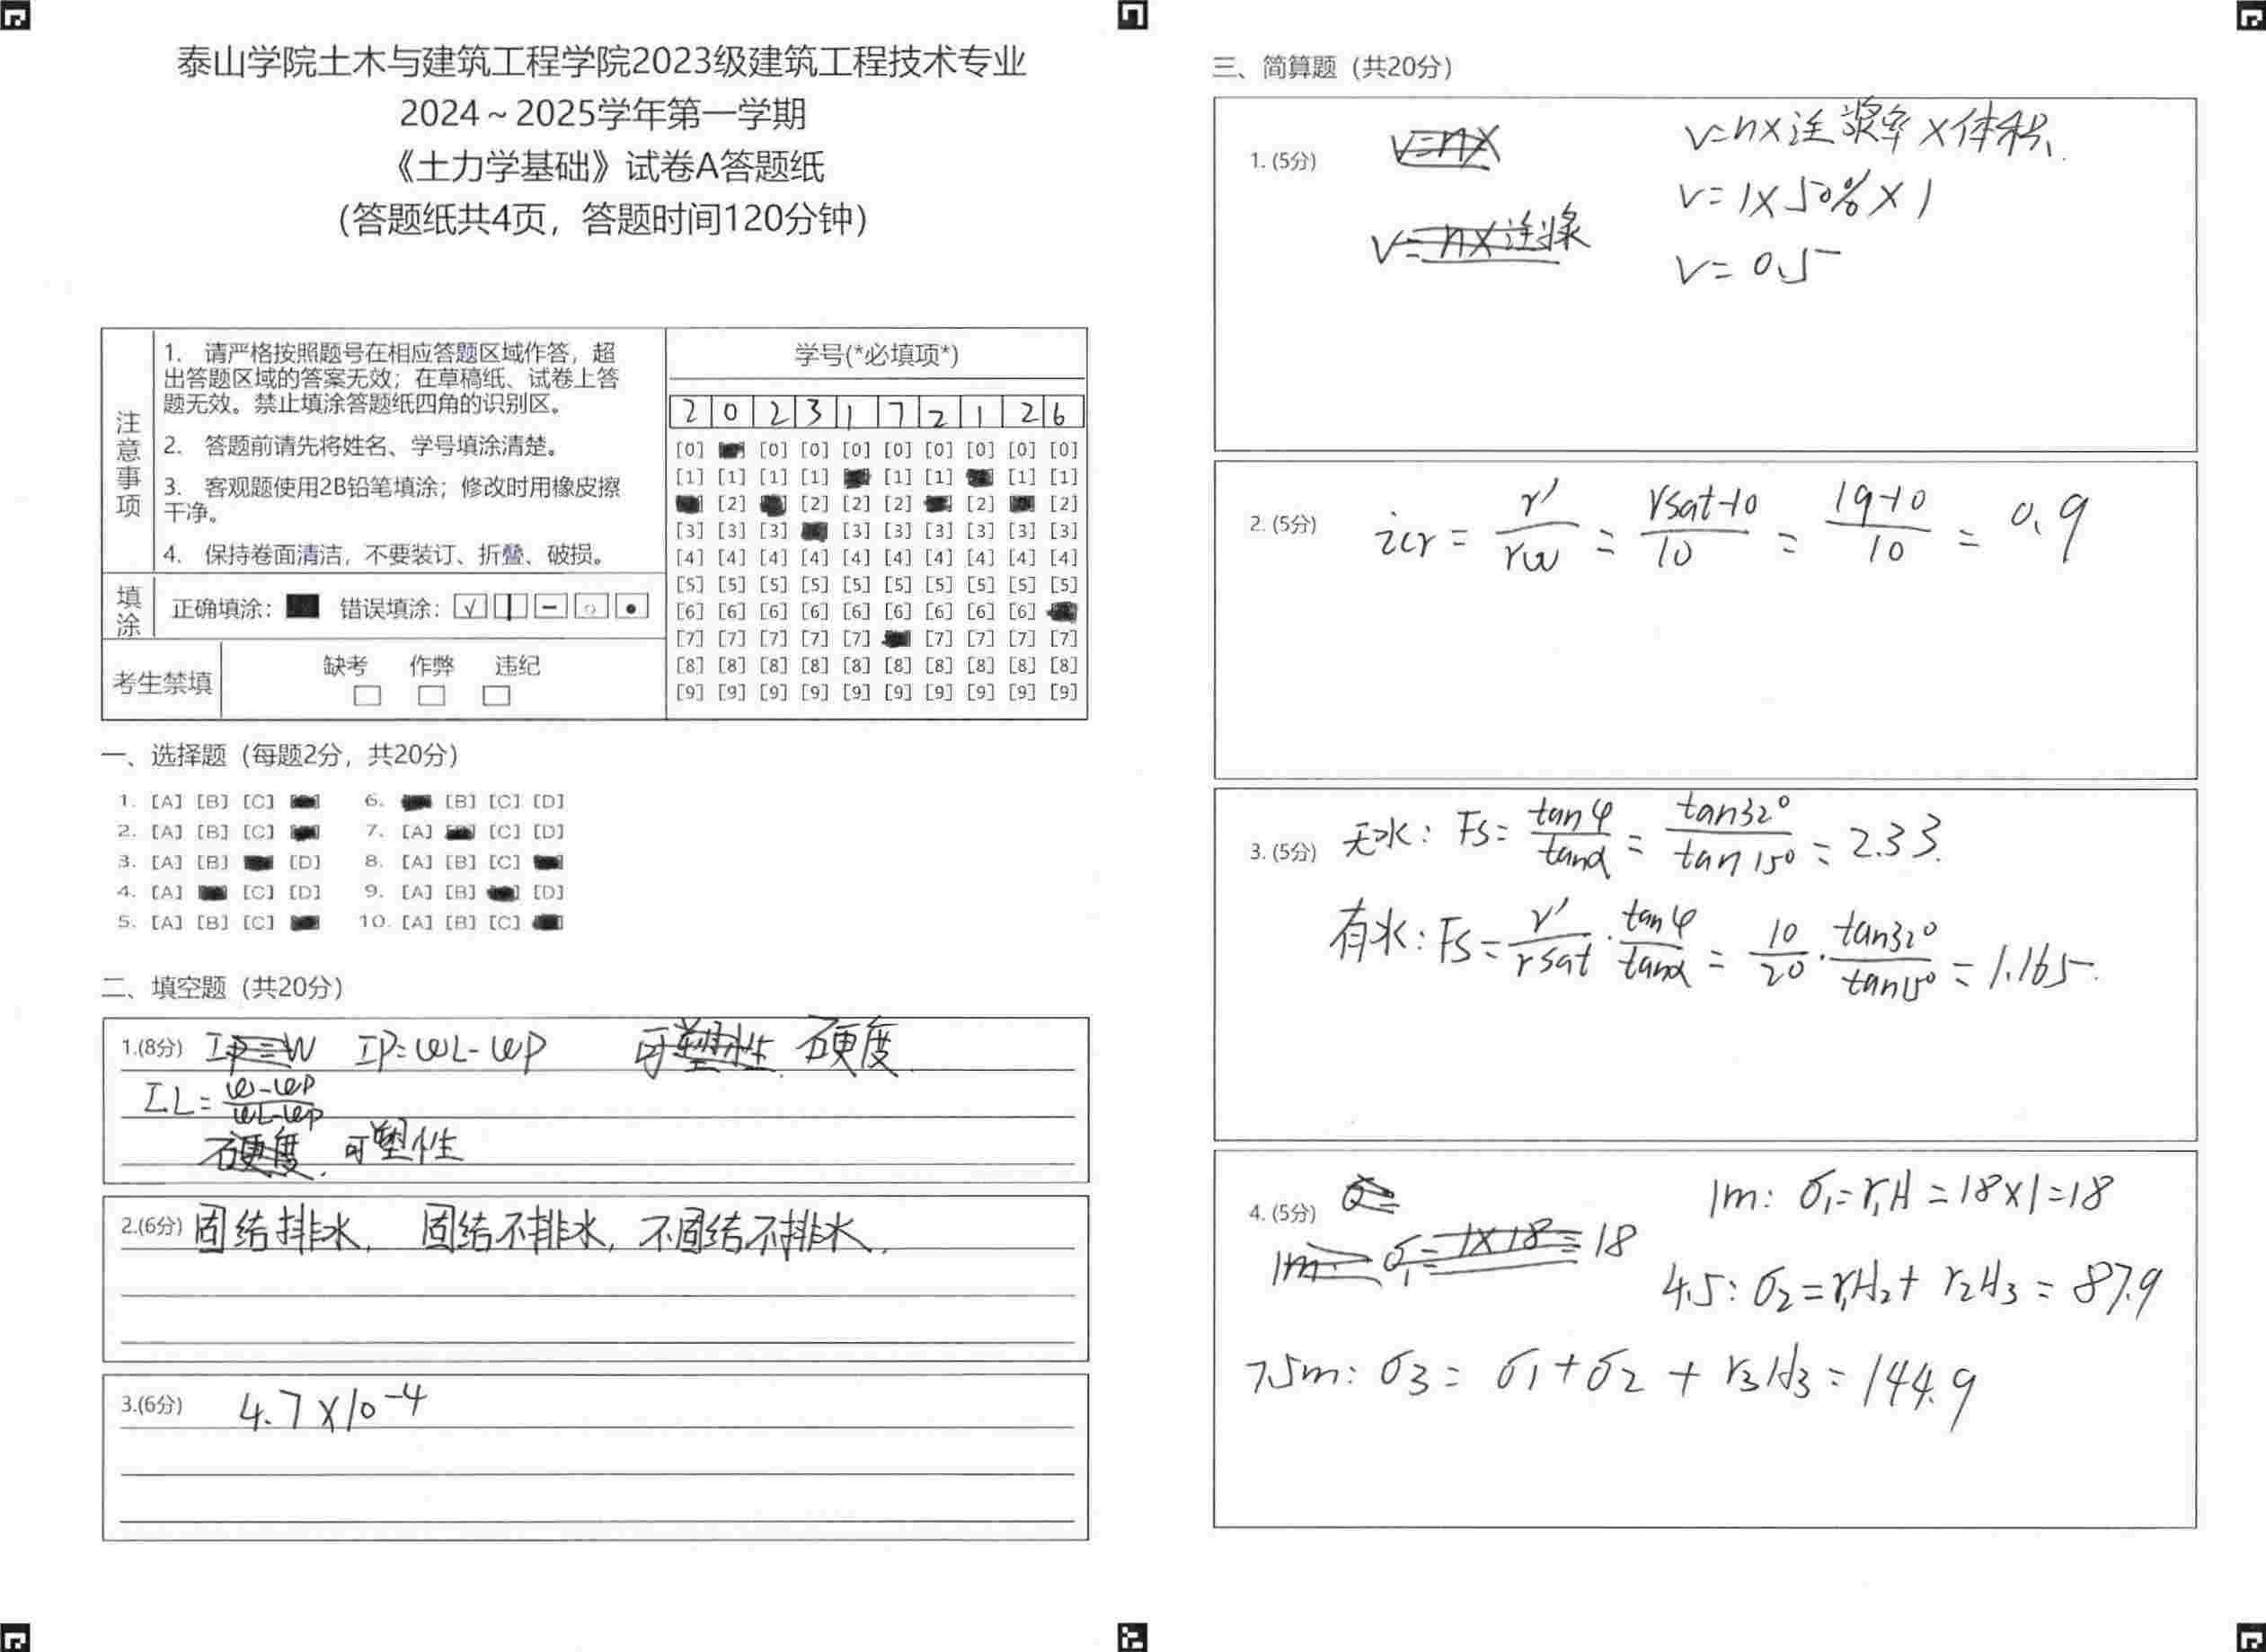 泰山学院土木与建筑工程学院2023级建筑工程技术专业
2024～2025学年第一学期
《土力学基础》试卷A答题纸
（答题纸共4页，答题时间120分钟）
注意事项
1. 请严格按照题号在相应答题区域作答，超
出答题区域的答案无效；在草稿纸、试卷上答
题无效。禁止填涂答题纸四角的识别区。
2. 答题前请先将姓名、学号填涂清楚。
3. 客观题使用2B铅笔填涂；修改时用橡皮擦
干净。
4. 保持卷面清洁，不要装订、折叠、破损。
填涂 正确填涂： 错误填涂：
考生禁填 缺考 作弊 违纪
学号(*必填项*)
2 0 2 3 1 7 2 1 2 6
[0] [0] [0] [0] [0] [0] [0] [0] [0]
[1] [1] [1] [1] [1] [1] [1] [1]
[2] [2] [2] [2] [2] [2]
[3] [3] [3] [3] [3] [3] [3] [3] [3]
[4] [4] [4] [4] [4] [4] [4] [4] [4] [4]
[5] [5] [5] [5] [5] [5] [5] [5] [5] [5]
[6] [6] [6] [6] [6] [6] [6] [6] [6]
[7] [7] [7] [7] [7] [7] [7] [7] [7]
[8] [8] [8] [8] [8] [8] [8] [8] [8] [8]
[9] [9] [9] [9] [9] [9] [9] [9] [9] [9]
一、选择题（每题2分，共20分）
1. [A] [B] [C] 6. [B] [C] [D]
2. [A] [B] [C] 7. [A] [C] [D]
3. [A] [B] [D] 8. [A] [B] [C]
4. [A] [C] [D] 9. [A] [B] [D]
5. [A] [B] [C] 10. [A] [B] [C]
二、填空题（共20分）
1.(8分) IP=W IP=WL-WP 可塑性. 硬度.
IL=(W-WP)/(WL-WP)
硬度. 可塑性
2.(6分) 固结排水, 固结不排水, 不固结不排水.
3.(6分) 4.7×10⁻⁴
三、简算题（共20分）
1. (5分) V=n× V=n×注浆率×体积.
V=1×50%×1
V=n×注浆
V=0.5
2. (5分) icr=r'/rw=(rsat-10)/10=(19-10)/10=0.9
3. (5分) 无水: Fs=tanφ/tanα=tan32°/tan15°=2.33.
有水: Fs=r'/rsat·tanφ/tanα=10/20·tan32°/tan15°=1.165.
4. (5分) σ= 1m: σ₁=r₁H=18×1=18
1m: σ₁=1×18=18
4.5: σ₂=r₁H₂+r₂H₃=87.9
7.5m: σ₃=σ₁+σ₂+r₃H₃=144.9